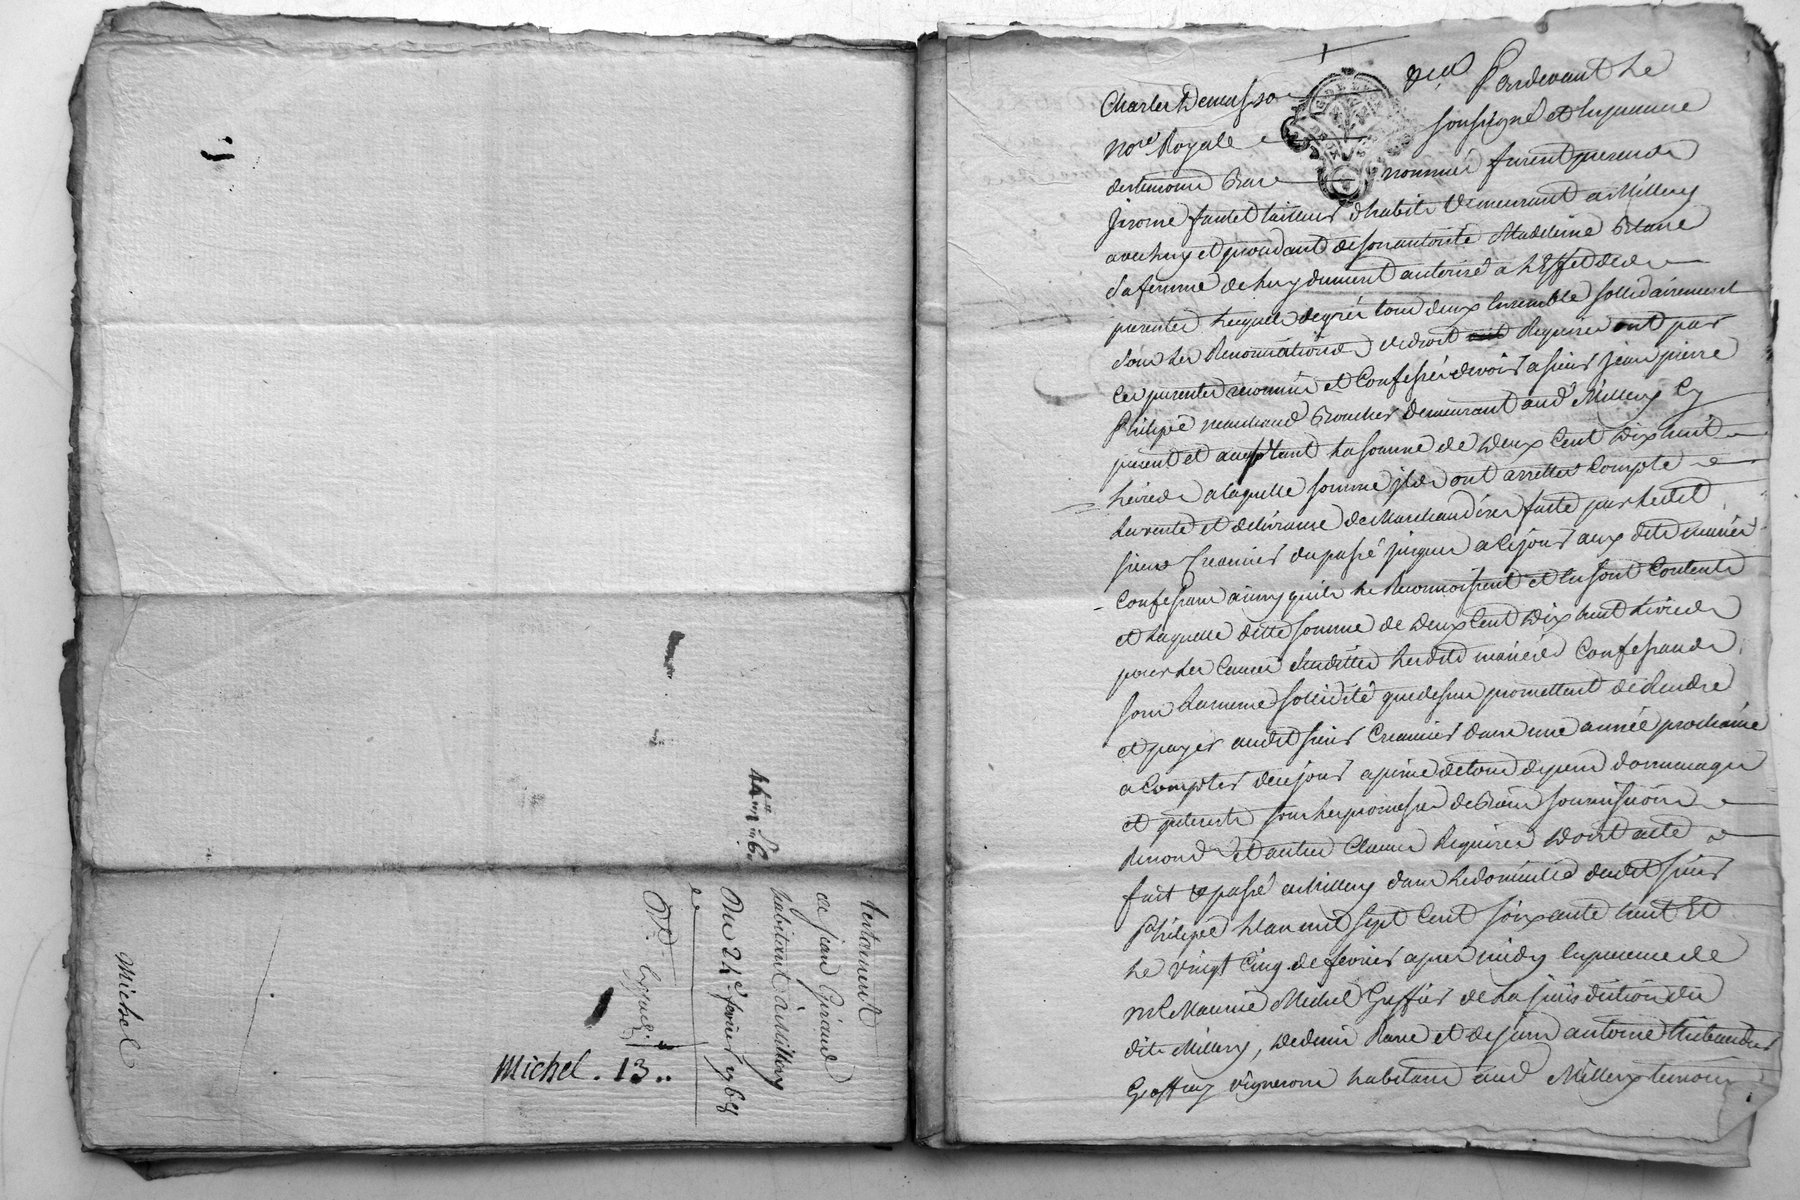 testament
de jean Giraud
habitant a Millery
Du 24e fevrier 1768
Michel
Michel . 13..
Pardevant Le
Charles
Nore Royale soussigné et En presence
destemoins Bas nommés furent presents
Jirome tailleur d'habits Demeurant a Millery
avec luy et procedant de son autorité Madeleine Blanc
Sa femme de luy dument autorisé a L'Effet des
presentes Lesquels degrés tous deux Ensemble sollidairement
sous Les Renonciations de droit Requises ont par
Ces presentes reconnus et Confessés devoir a sieur jean pierre
Philipe marchand Boucher Demeurant aud Millery Cy
present et acceptant La somme de Deux Cent Dix huit
Livres a laquelle somme ils ont arretter Compte
La vente et delivrance de Marchandises faite par Ledit
sieur Creancier du passé jusques a Ce jour aux dits mariés
Confessant ainsy qu'ils Le Reconnoissent et En sont Contents
et Laquelle ditte somme de Deux Cent Dix huit Livres
pour Les Causes susdittes Lesdits mariés Confessants
sous La meme sollidité que dessus promettent de Rendre
et payer audit sieur Creancier dans une année prochaine
a Compter de ce jour a peine de tous depens dommages
et interests sous Les promesses de Biens soumissions
Renond et autres Clauses Requises Dont acte
fait et passé a Millery dans Le domicille dudit sieur
Philipe L'an mil sept Cent soixante huit Et
Le vingt Cinq de fevrier apres midy En presence de
Me Maurice Michel Greffier de La jurisdiction du
dit Millery, et de sieur antoine Thibaudier
Geoffray vignerons habitans aud Millery temoins